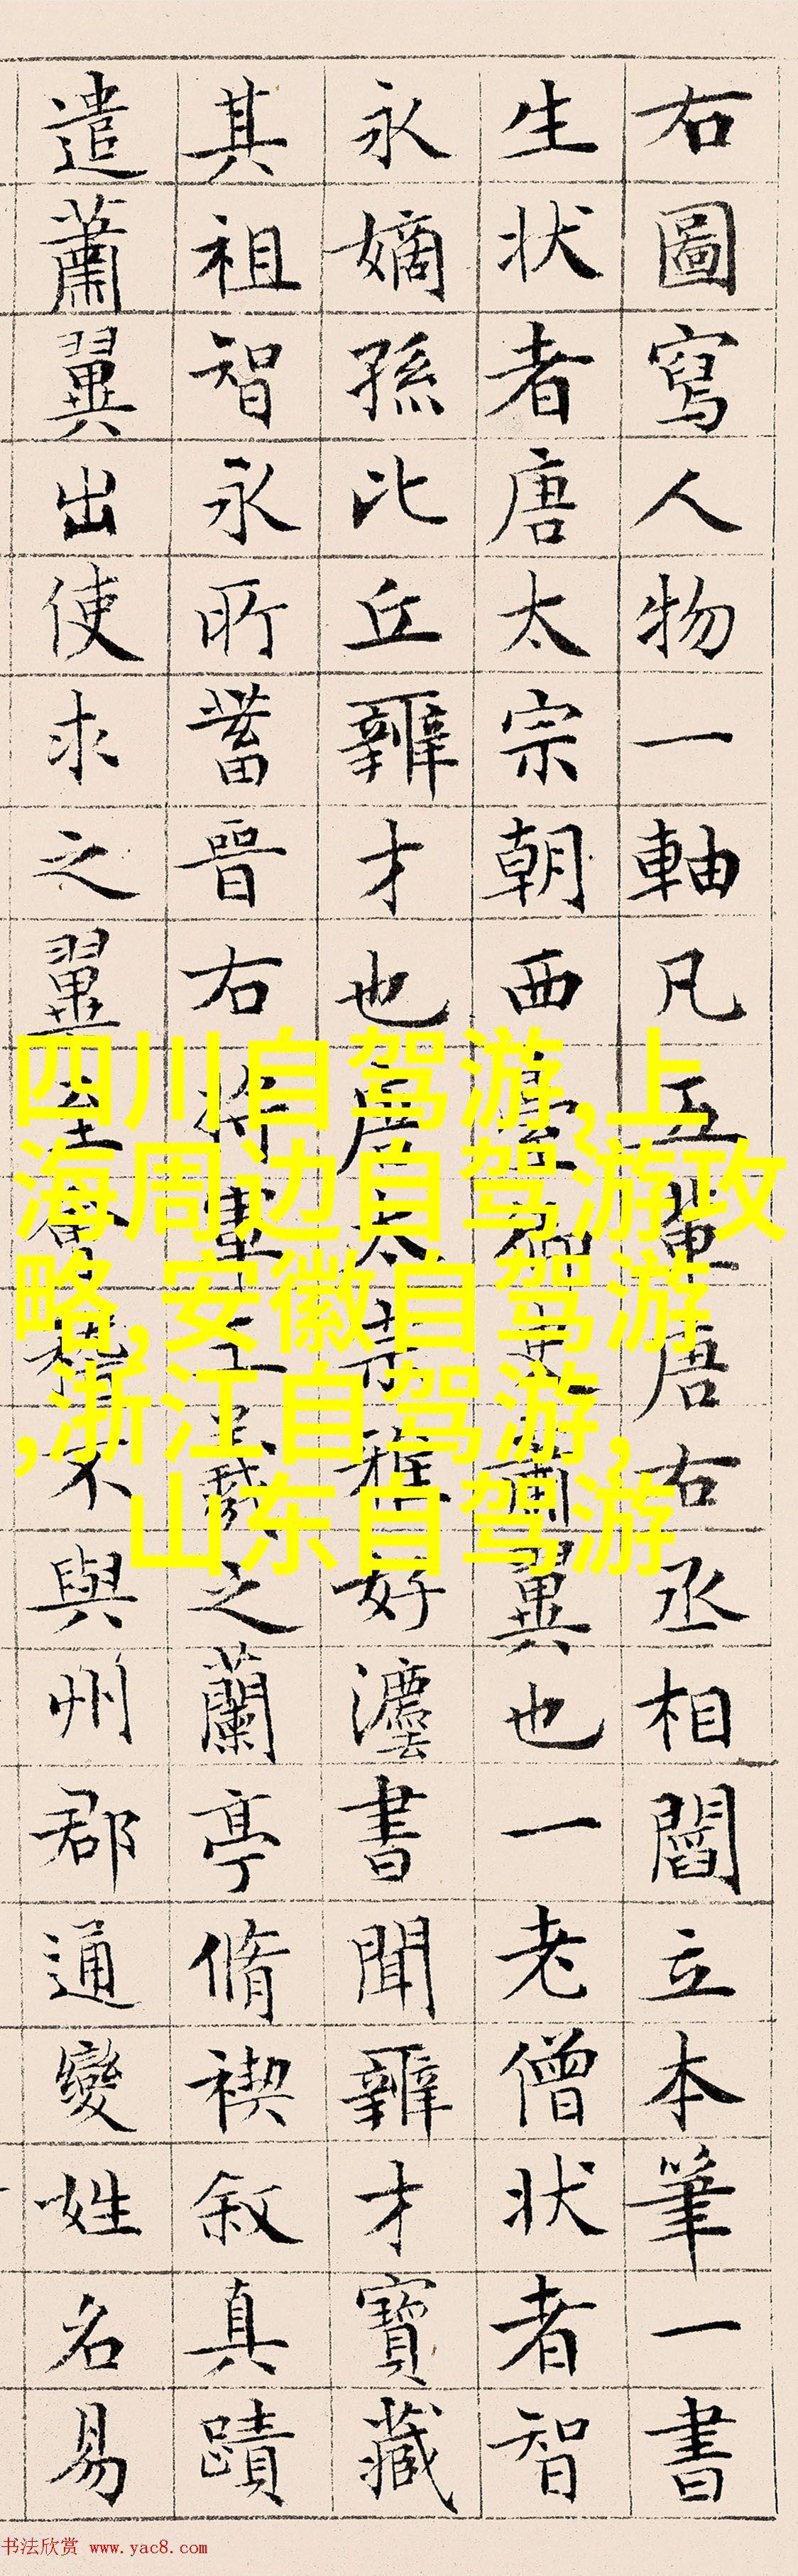 右圖寫人物一軸凡五輩唐右丞相閻立本筆一書
生状者唐太宗朝西臺御史蕭翼也一老僧状者智
永嫡孫比丘辯才也唐太宗雅好灋書聞辯才寶藏
其祖智永所蓄晉右將軍王羲之蘭亭脩禊叙真蹟
遣蕭翼出使求之翼至會稽不與州郡通變姓名易
四川自驾游,上
海周边自驾游攻
略,安徽自驾游
,浙江自驾游,
山东自驾游
书法欣赏 www.yac8.com